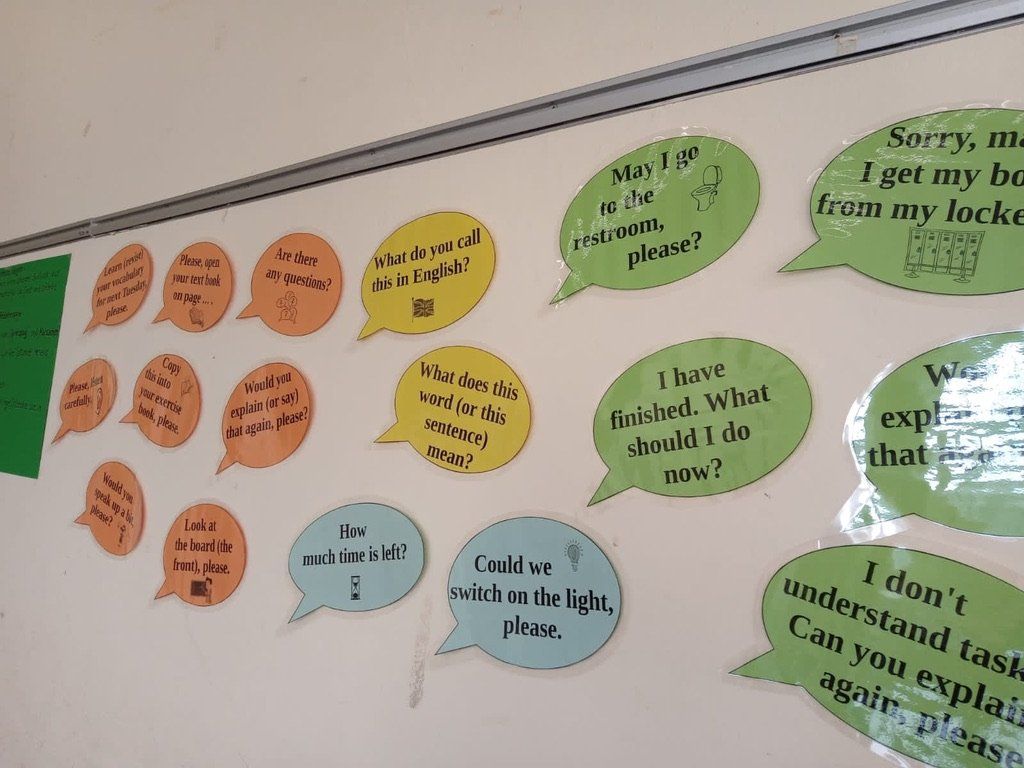 Learn (revise)
your vocabulary
for next Tuesday,
please.
Please, open
your text book
on page ... .
Are there
any questions?
What do you call
this in English?
May I go
to the
restroom,
please?
Sorry,
I get my
from my
Please,
carefully.
Copy
this into
your exercise
book, please.
Would you
explain (or say)
that again, please?
What does this
word (or this
sentence)
mean?
I have
finished. What
should I do
now?
that
Would you
speak up a bit,
please?
Look at
the board (the
front), please.
How
much time is left?
Could we
switch on the light,
please.
I don't
understand
Can you
again, please